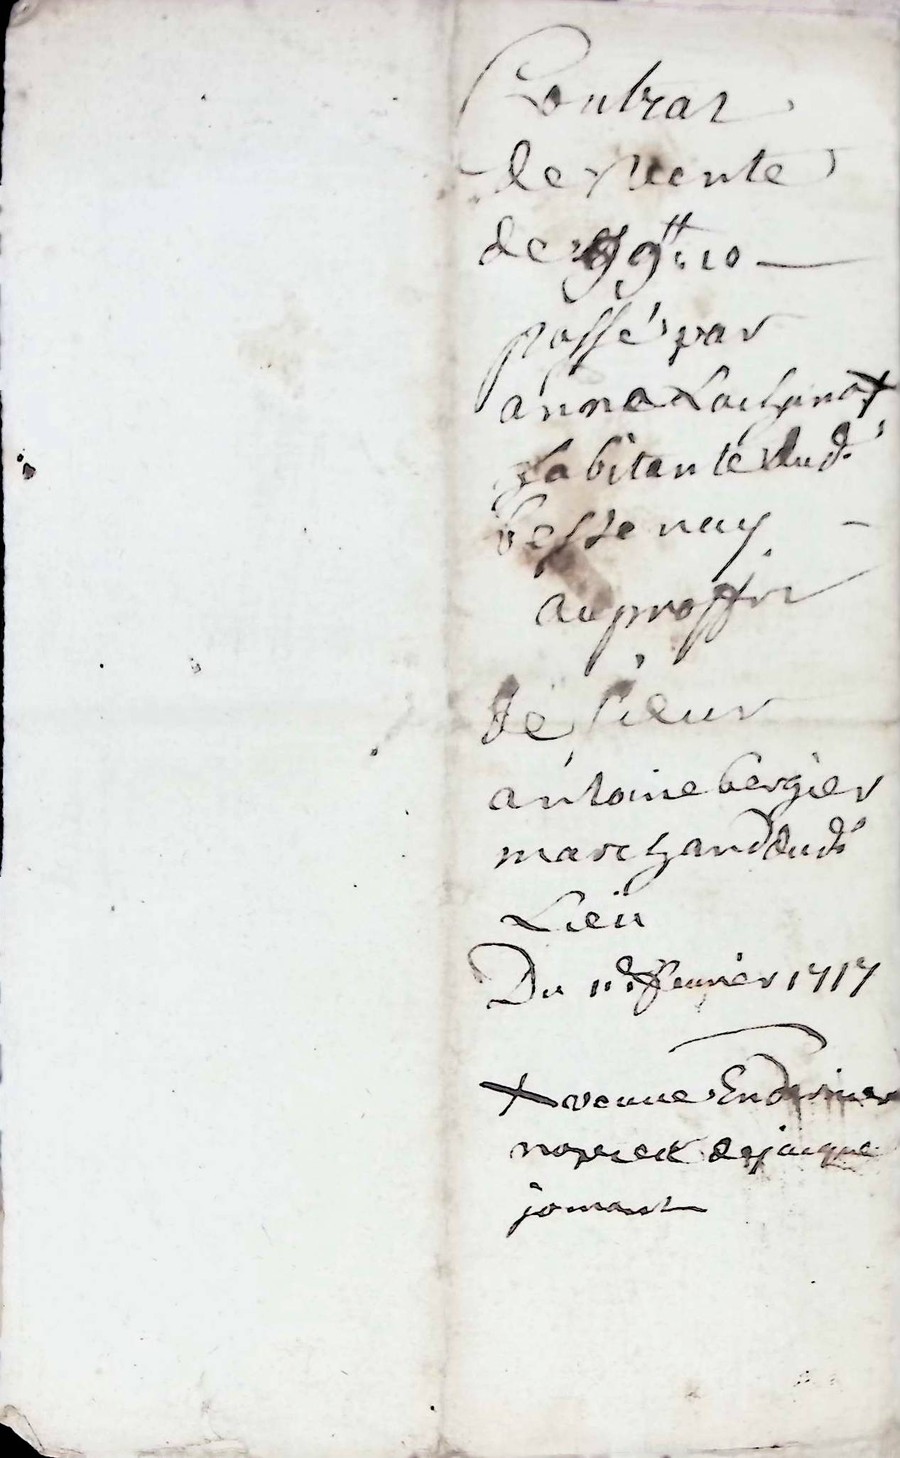 Contrat
de Vente
de 99tt: 10
passé par
anne Lachana +
habitante dud.
bessenay
au proffit
de sieur
antoine bergier
marchand dud.
Lieu
Du 11e. feurier 1717
+ veuue En dernier
nopces de jacque
jomant